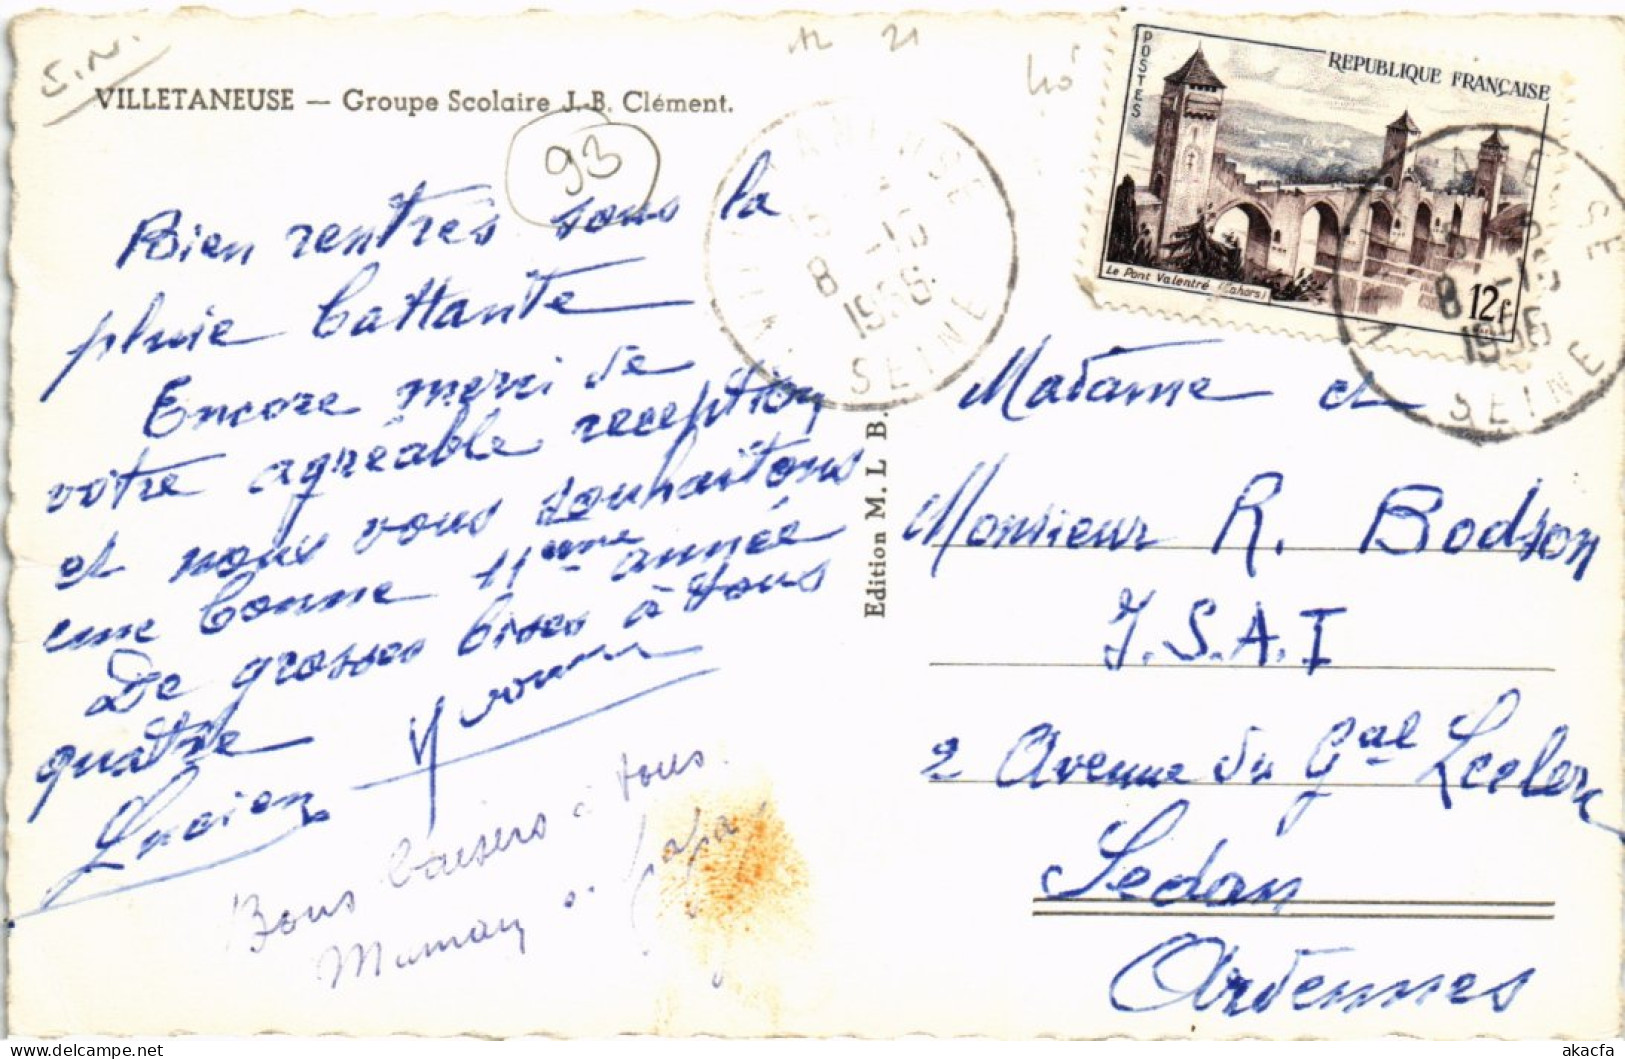 S.N.
VILLETANEUSE — Groupe Scolaire J.-B. Clément.
93
Bien rentrés sous la
pluie battante
Encore merci de
votre agréable reception
et nous vous souhaitons
une bonne 11eme année
De grosses bises à tous
quatre
Lucien Yvonne
Bons baisers à tous.
Maman et Papa
Edition M. L. B.
POSTES
REPUBLIQUE FRANÇAISE
Le Pont Valentré (Cahors)
12f
8 -10
1956
SEINE
8 -10
1956
SEINE
Madame et
Monsieur R. Bodson
I.S.A.I
2 Avenue du Gal Leclerc
Sedan
Ardennes
akacfa